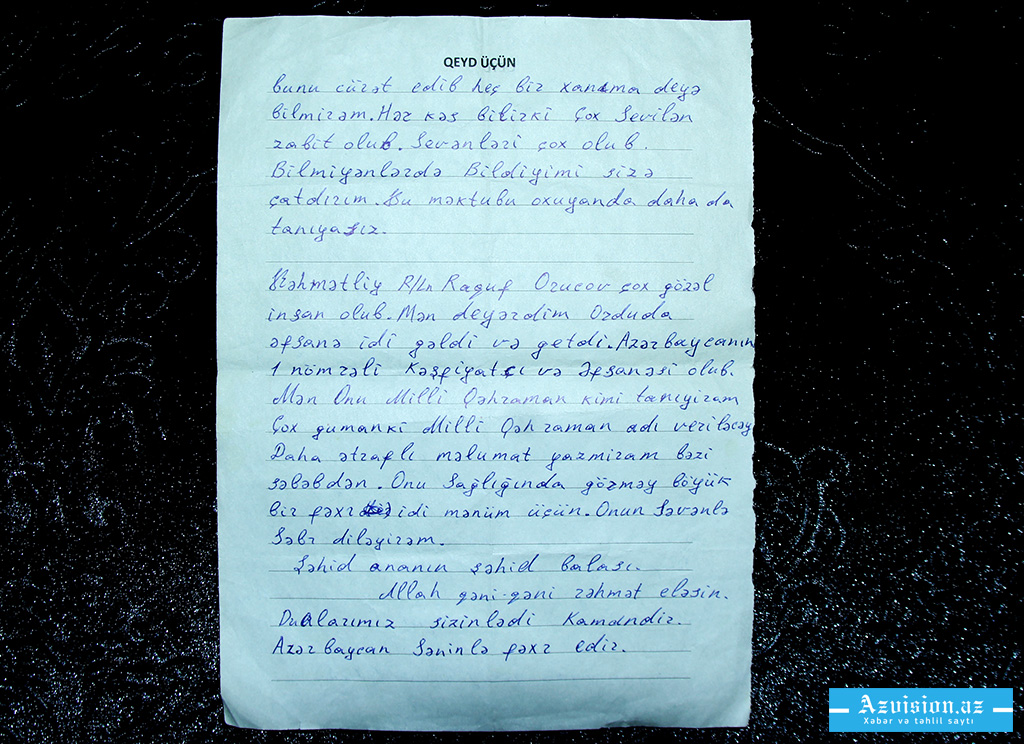 QEYD ÜÇÜN
bunu cürət edib heç bir xanıma deyə
bilmirəm. Hər kəs bilirki Çox Sevilən
zabit olub. Sevənləri çox olub.
Bilmiyənlərdə Bildiyimi sizə
çatdırım. Bu məktubu oxuyanda daha da
tanıyasız.
Rəhmətliy R/Ln Raquf Orucov çox gözəl
insan olub. Mən deyərdim Orduda
əfsanə idi gəldi və getdi. Azərbaycanın
1 nömrəli Kəşfiyatçı və Əfsanəsi olub.
Mən Onu Milli Qəhraman kimi tanıyıram
Çox gumanki Milli Qəhraman adı veriləcəy
Daha ətraflı məlumat yazmiram bəzi
səbəbdən. Onu Sağlığında görməy böyük
bir fəxr idi mənüm üçün. Onun Səvənlə
Səbr diləyirəm.
Şəhid ananın şəhid balası.
Allah qəni-qəni rəhmət eləsin.
Dualarımız sizinlədi Kamandir.
Azərbaycan Səninlə fəxr edir.
Azvision.az
Xəbər və təhlil saytı